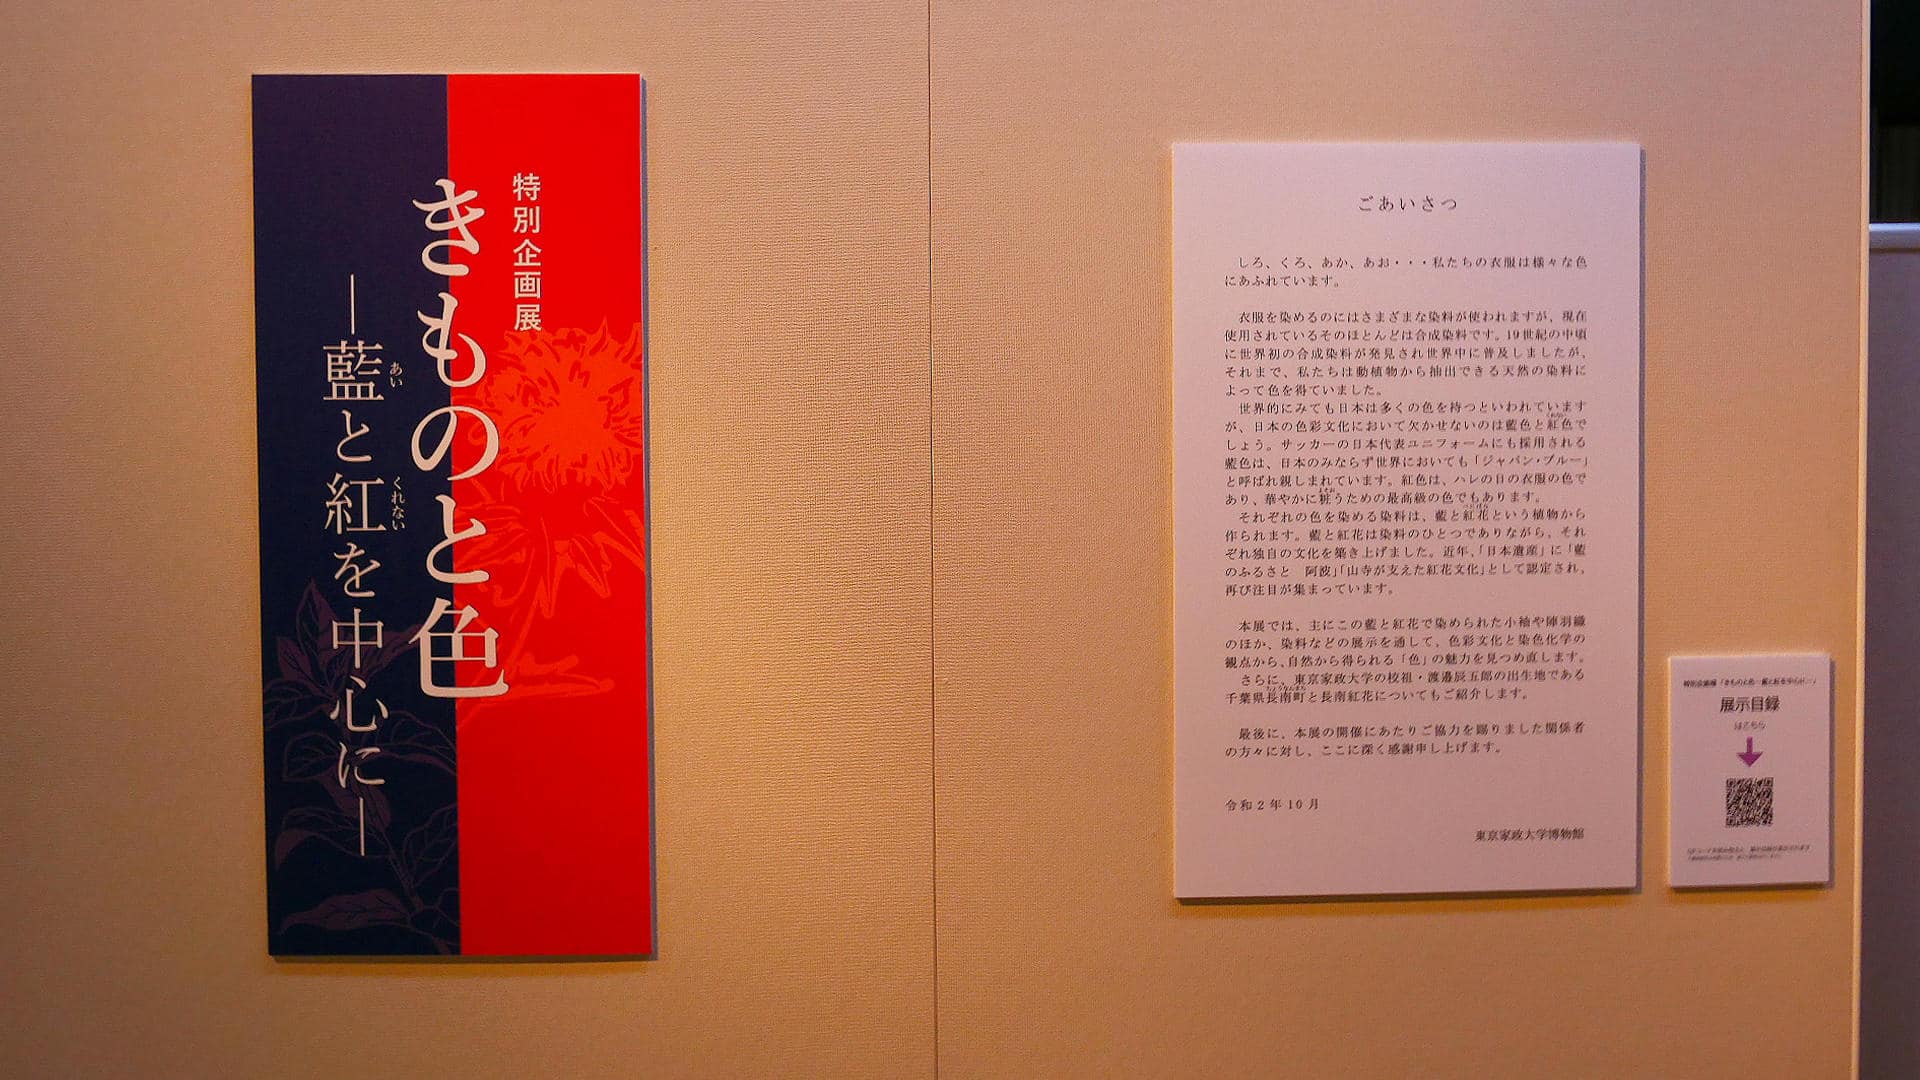 特別企画展
きものと色
―藍と紅を中心に―
あい
くれない
ごあいさつ
しろ、くろ、あか、あお・・・私たちの衣服は様々な色
にあふれています。
衣服を染めるのにはさまざまな染料が使われますが、現在
使用されているそのほとんどは合成染料です。19世紀の中頃
に世界初の合成染料が発見され世界中に普及しましたが、
それまで、私たちは動植物から抽出できる天然の染料に
よって色を得ていました。
世界的にみても日本は多くの色を持つといわれています
が、日本の色彩文化において欠かせないのは藍色と紅色で
しょう。サッカーの日本代表ユニフォームにも採用される
藍色は、日本のみならず世界においても「ジャパン・ブルー」
と呼ばれ親しまれています。紅色は、ハレの日の衣服の色で
あり、華やかに粧うための最高級の色でもあります。
それぞれの色を染める染料は、藍と紅花という植物から
作られます。藍と紅花は染料のひとつでありながら、それ
ぞれ独自の文化を築き上げました。近年、「日本遺産」に「藍
のふるさと 阿波」「山寺が支えた紅花文化」として認定され、
再び注目が集まっています。
本展では、主にこの藍と紅花で染められた小袖や陣羽織
のほか、染料などの展示を通して、色彩文化と染色化学の
観点から、自然から得られる「色」の魅力を見つめ直します。
さらに、東京家政大学の校祖・渡邉辰五郎の出生地である
千葉県長南町と長南紅花についてもご紹介します。
最後に、本展の開催にあたりご協力を賜りました関係者
の方々に対し、ここに深く感謝申し上げます。
令和2年10月
東京家政大学博物館
特別企画展「きものと色―藍と紅を中心に―」
展示目録
はこちら